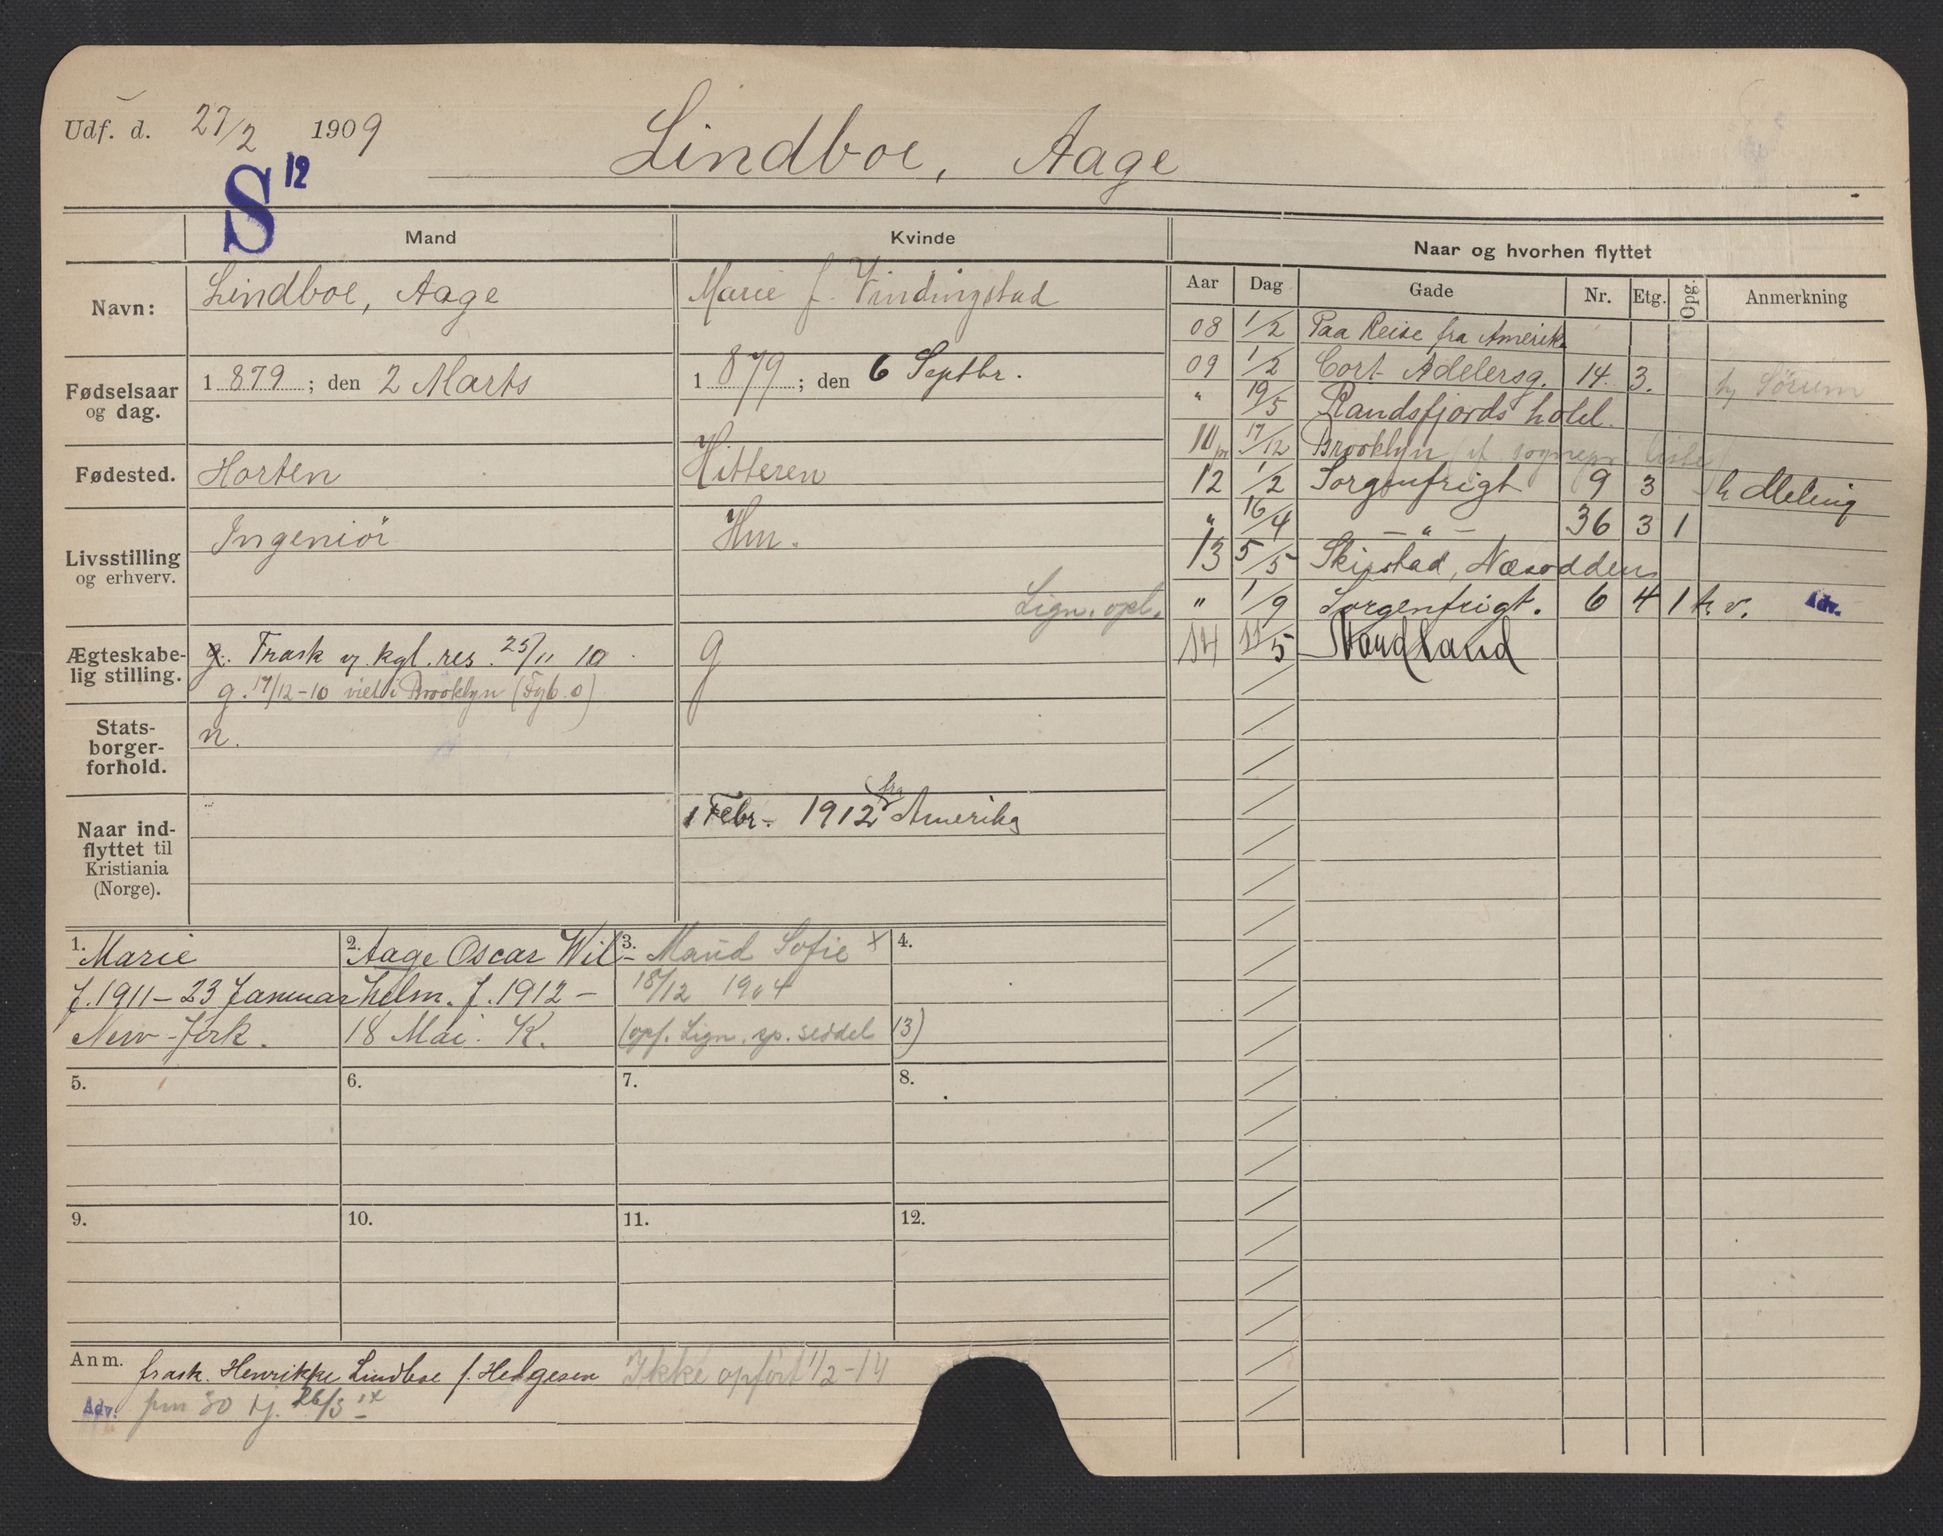 Udf. d. 27/2 1909
Lindboe, Aage
S 12
Mand
Kvinde
Naar og hvorhen flyttet
Navn:
Lindboe, Aage
Marie f. Vindingstad
Fødselsaar og dag.
1879; den 2 Marts
1879; den 6 Septbr.
Fødested.
Horten
Hitteren
Livsstilling og erhverv.
Ingeniör
Hm.
Lign. opl.
Ægteskabelig stilling.
g. Frask v. kgl. res. 25/11 10
g. 17/12-10 viet i Brooklyn (Fgb. o)
g
Statsborgerforhold.
n.
Naar indflyttet til Kristiania (Norge).
1 Febr. 1912 fra Amerika
Aar Dag Gade Nr. Etg. Opg. Anmerkning
08 1/2 Paa Reise fra Amerika
09 1/2 Cort Adelersg. 14. 3. Sörum
" 19/5 Randsfjords hotel.
10 17/12 Brooklyn
12 1/2 Sorgenfrigt 9 3 h Meling
" 16/4 — " — 36 3 1
13 5/5 Næsodden
" 1/9 Sorgenfrigt. 6 4 1 h. v. Adv.
14 11/5
1. Marie
f. 1911 – 23 Januar
New-York.
2. Aage Oscar Wil-
helm. f. 1912 –
18 Mai. K.
3. Maud Sofie x
18/12 1904
(opf. Lign. sp. seddel 13)
4.
5.
6.
7.
8.
9.
10.
11.
12.
Anm. frask. Henrikke Lindboe f. Helgesen Ikke opført 1/2-14
Adv. 26/3